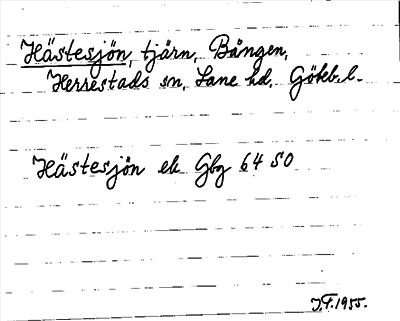 Hästesjön, tjärn, Bången,
Herrestads sn, Lane hd, Göteb. l.
Hästesjön ek Gbg 64 SO
J.F. 1955.